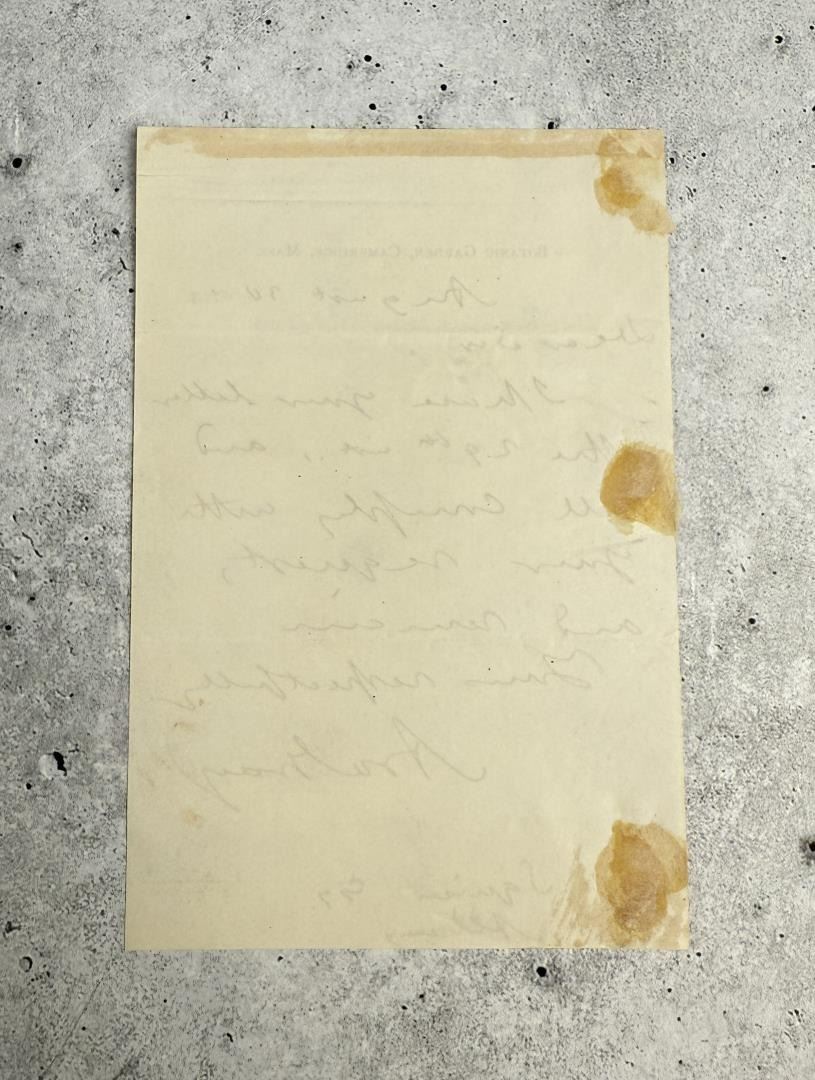 Botanic Garden, Cambridge, Mass.
August 30
Dear Sir,
I have your letter
the 29th ult., and
comply with
your request,
and remain
Yours respectfully
Asa Gray
Squier Esq